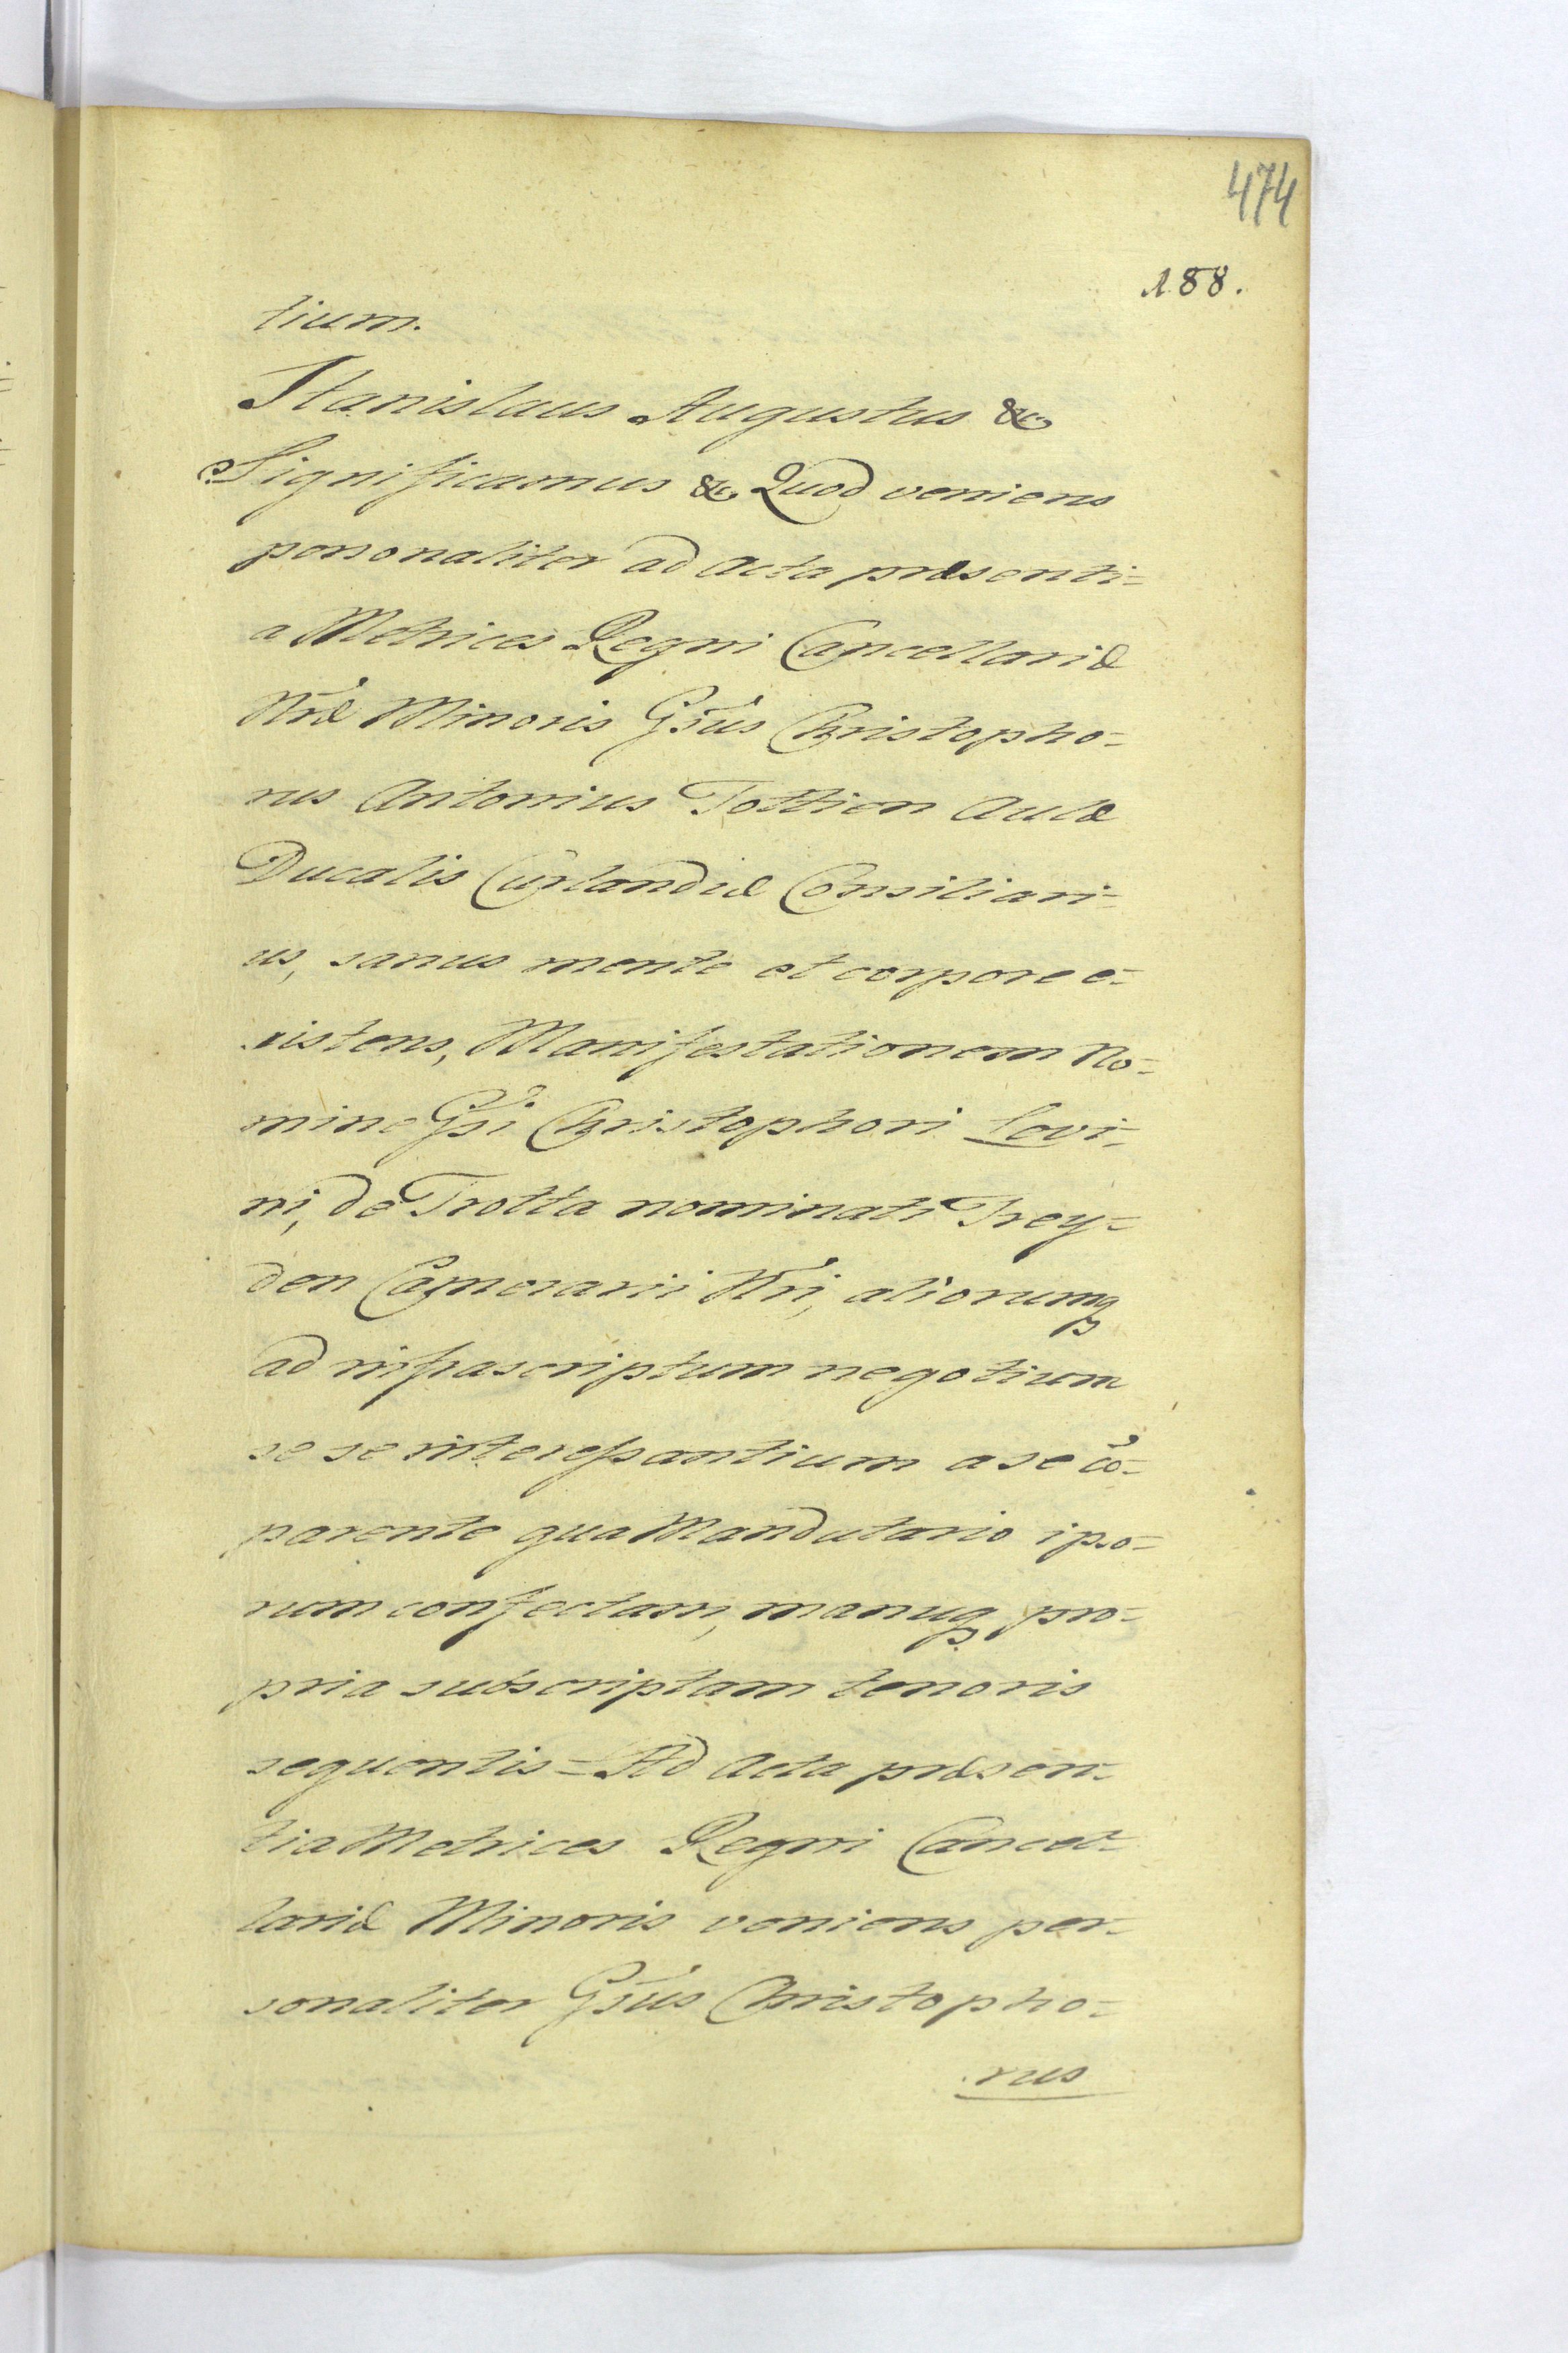 474
188.
tium.
Stanislaus Augustus &c
Significamus &c Quod veniens
personaliter ad Acta præsenti=
a Metrices Regni Cancellariæ
Nr̃æ Minoris Gs̃us Christopho=
rus Antonius Tottien Aulæ
Ducalis Curlandiæ Consiliari=
us, sanus mente et corpore e=
xistens, Manifestationem No=
mine Gs̃i Christophori Levi=
ni, de Trotta nominati Trey=
den Camerarii Nr̃i, aliorumq
ad infrascriptum negotium
se se interessantium a se cõ=
parente qua Mandatario ipso=
rum confectam, manuq pro=
pria subscriptam tenoris
sequentis = Ad Acta præsen=
tia Metrices Regni Cancel=
lariæ Minoris veniens per=
sonaliter Gs̃us Christopho=
rus